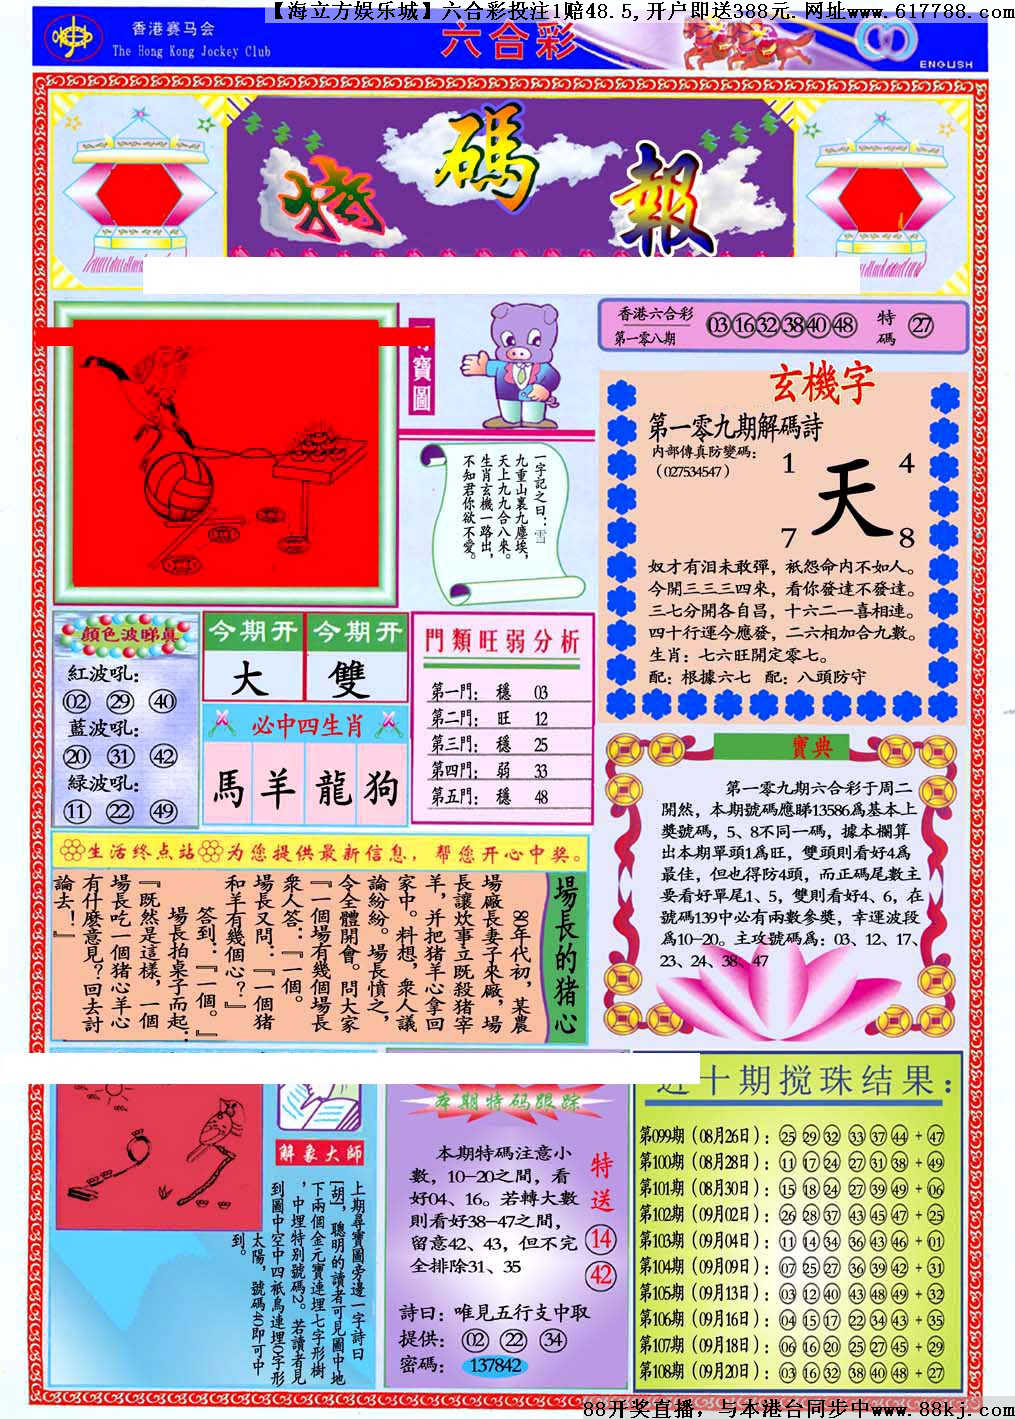 【海立方娱乐城】六合彩投注1赔48.5,开户即送388元.网址www.617788.com
香港赛马会
The Hong Kong Jockey Club
六合彩
ENGLISH
特碼報
寶圖
香港六合彩
第一零八期
03 16 32 38 40 48
特碼
27
一字記之曰：雪
九重山裏九塵埃，
天上九九合八來。
生肖玄機一路出，
不知君你欲不愛。
玄機字
第一零九期解碼詩
内部傳真防變碼：
（027534547）
1 4
天
7 8
奴才有泪未敢彈，祇怨命内不如人。
今開三三三四來，看你發達不發達。
三七分開各自昌，十六二一喜相連。
四十行運今應發，二六相加合九數。
生肖：七六旺開定零七。
配：根據六七 配：八頭防守
顔色波睇真
紅波吼：
02 29 40
藍波吼：
20 31 42
緑波吼：
11 22 49
今期开 今期开
大 雙
必中四生肖
馬 羊 龍 狗
門類旺弱分析
第一門： 穩 03
第二門： 旺 12
第三門： 穩 25
第四門： 弱 33
第五門： 穩 48
寶典
第一零九期六合彩于周二
開然，本期號碼應睇13586爲基本上
獎號碼，5、8不同一碼，據本欄算
出本期單頭1爲旺，雙頭則看好4爲
最佳，但也得防4頭，而正碼尾數主
要看好單尾1、5，雙則看好4、6，在
號碼139中必有兩數参獎，幸運波段
爲10-20。主攻號碼爲：03、12、17、
23、24、38、47
生活终点站 为您提供最新信息，帮您开心中奖。
場長的猪心
88年代初，某農
場廠長妻子來廠，場
長讓炊事立既殺猪宰
羊，并把猪羊心拿回
家中。料想，衆人議
論紛紛。場長憤之，
令全體開會。問大家
『一個場有幾個場長
衆人答：『一個。
場長又問：『一個猪
和羊有幾個心？』
答到：『一個。』
場長拍桌子而起：
『既然是這樣，一個
場長吃一個猪心羊心
有什麼意見？回去討
論去！』
解象大師
上期尋寶圖旁邊一字詩曰
[胡]，聰明的讀者可見圖中地
下兩個金元寶連埋七字形樹
，中埋特别號碼2。若讀者見
到圖中空中四祇鳥連埋0字形
太陽，號碼40即可中
到。
本期特码跟踪
本期特碼注意小
數，10-20之間，看
好04、16。若轉大數
則看好38-47之間，
留意42、43，但不完
全排除31、35
特送
14
42
詩曰：唯見五行支中取
提供： 02 22 34
密碼： 137842
近十期搅珠结果：
第099期（08月26日）：25 29 32 33 37 44 + 47
第100期（08月28日）：11 17 24 27 31 38 + 49
第101期（08月30日）：15 18 24 27 39 49 + 06
第102期（09月02日）：26 28 37 43 45 47 + 25
第103期（09月04日）：11 14 34 36 43 46 + 01
第104期（09月09日）：07 25 27 36 39 42 + 31
第105期（09月13日）：03 12 40 43 48 49 + 32
第106期（09月16日）：04 15 17 22 34 43 + 35
第107期（09月18日）：06 16 20 25 27 45 + 29
第108期（09月20日）：03 16 32 38 40 48 + 27
88开奖直播，与本港台同步中www.88kj.com